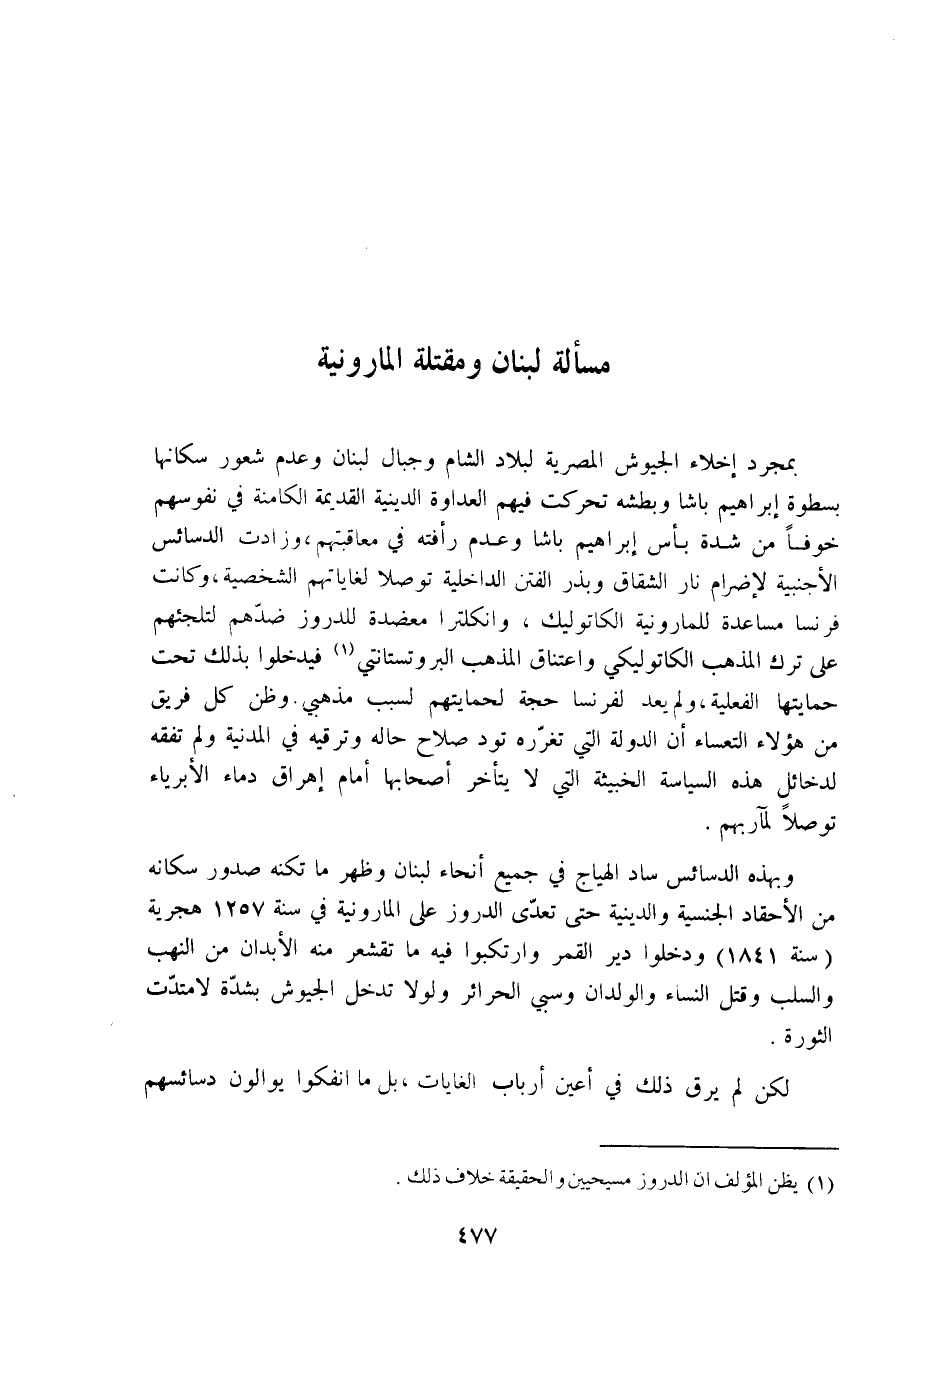 مسألة لبنان ومقتلة المارونية
بمجرد إخلاء الجيوش المصرية لبلاد الشام وجبال لبنان وعدم شعور سكانها
بسطوة إبراهيم باشا وبطشه تحركت فيهم العداوة الدينية القديمة الكامنة في نفوسهم
خوفاً من شدة بأس إبراهيم باشا وعدم رأفته في معاقبتهم، وزادت الدسائس
الأجنبية لإضرام نار الشقاق وبذر الفتن الداخلية توصلا لغاياتهم الشخصية، وكانت
فرنسا مساعدة للمارونية الكاتوليك، وانكلترا معضدة للدروز ضدّهم لتلجئهم
على ترك المذهب الكاتوليكي واعتناق المذهب البروتستانتي(١) فيدخلوا بذلك تحت
حمايتها الفعلية، ولم يعد لفرنسا حجة لحمايتهم لسبب مذهبي. وظن كل فريق
من هؤلاء التعساء أن الدولة التي تغرّره تود صلاح حاله وترقيه في المدنية ولم تفقه
لدخائل هذه السياسة الخبيثة التي لا يتأخر أصحابها أمام إهراق دماء الأبرياء
توصلاً لمآربهم.
وبهذه الدسائس ساد الهياج في جميع أنحاء لبنان وظهر ما تكنه صدور سكانه
من الأحقاد الجنسية والدينية حتى تعدّى الدروز على المارونية في سنة ١٢٥٧ هجرية
(سنة ١٨٤١) ودخلوا دير القمر وارتكبوا فيه ما تقشعر منه الأبدان من النهب
والسلب وقتل النساء والولدان وسبي الحرائر ولولا تدخل الجيوش بشدّة لامتدّت
الثورة.
لكن لم يرق ذلك في أعين أرباب الغايات، بل ما انفكوا يوالون دسائسهم
(١) يظن المؤلف ان الدروز مسيحيين والحقيقة خلاف ذلك.
٤٧٧